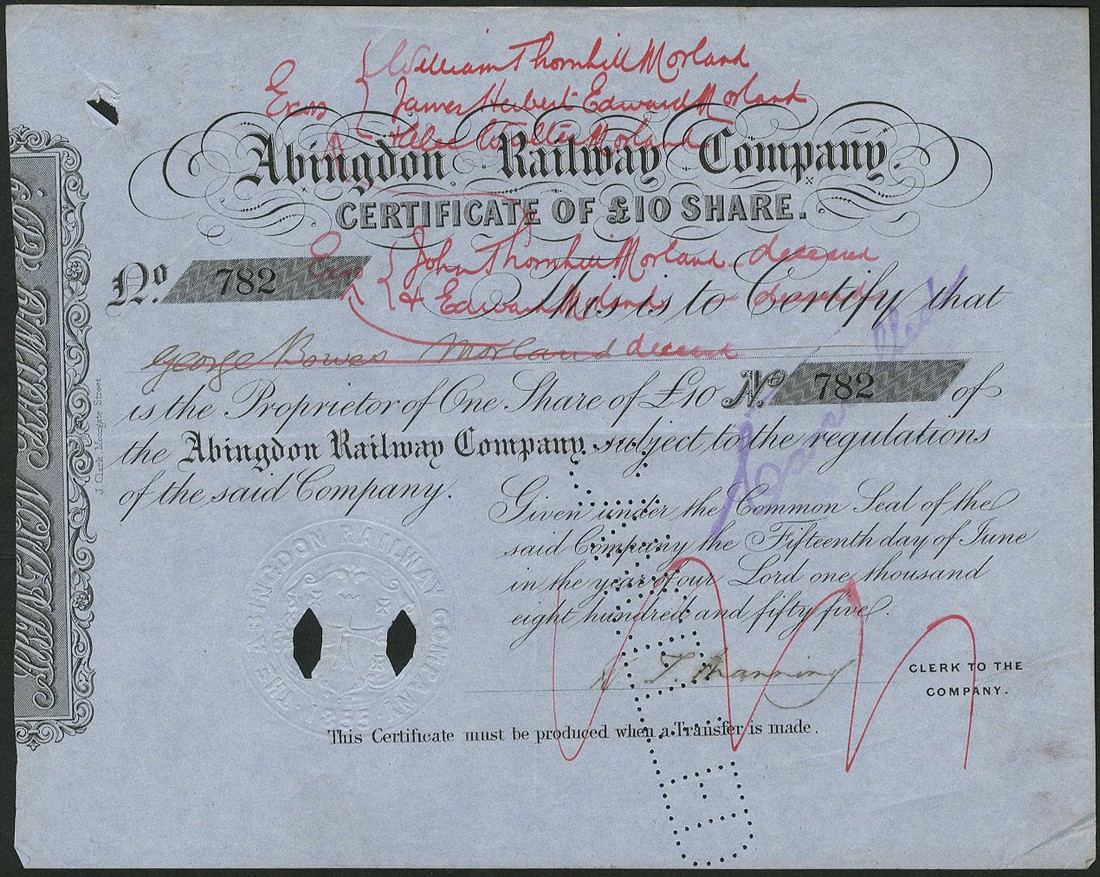 Exors { William Thornhill Morland
James Herbert Edward Morland
Walter Morland
Abingdon Railway Company.
CERTIFICATE OF £10 SHARE.
Exors { John Thornhill Morland deceased
& Edward Morland deceased
No. 782 This is to Certify that
George Bowes Morland deceased
is the Proprietor of One Share of £10 No. 782 of
the Abingdon Railway Company, subject to the regulations
of the said Company.
Given under the Common Seal of the
said Company the Fifteenth day of June
in the year of our Lord one thousand
eight hundred and fifty five.
T. Manning
CLERK TO THE
COMPANY.
This Certificate must be produced when a Transfer is made.
Cancelled
THE ABINGDON RAILWAY COMPANY
1855
ABINGDON RAILWAY CO.